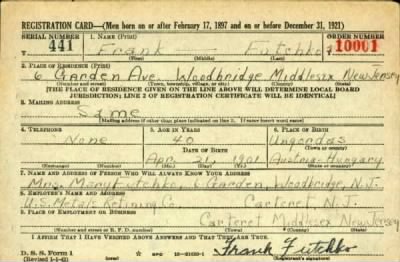 REGISTRATION CARD—(Men born on or after February 17, 1897 and on or before December 31, 1921)
SERIAL NUMBER 1. NAME (Print) ORDER NUMBER
441 Frank — Futchko 10001
(First) (Middle) (Last)
2. PLACE OF RESIDENCE (Print)
6 Garden Ave. Woodbridge Middlesex New Jersey
(Number and street) (Town, township, village, or city) (County) (State)
[THE PLACE OF RESIDENCE GIVEN ON THE LINE ABOVE WILL DETERMINE LOCAL BOARD
JURISDICTION; LINE 2 OF REGISTRATION CERTIFICATE WILL BE IDENTICAL]
3. MAILING ADDRESS
Same
[Mailing address if other than place indicated on line 2. If same insert word same]
4. TELEPHONE 5. AGE IN YEARS 6. PLACE OF BIRTH
None 40 Ungordas
DATE OF BIRTH (Town or county)
Apr. 21, 1901 Austria-Hungary
(Exchange) (Number) (Mo.) (Day) (Yr.) (State or country)
7. NAME AND ADDRESS OF PERSON WHO WILL ALWAYS KNOW YOUR ADDRESS
Mrs. Mary Futchko, 6 Garden, Woodbridge, N.J.
8. EMPLOYER'S NAME AND ADDRESS
U.S. Metals Refining Co. Carteret, N.J.
9. PLACE OF EMPLOYMENT OR BUSINESS
Carteret Middlesex New Jersey
(Number and street or R. F. D. number) (Town) (County) (State)
I AFFIRM THAT I HAVE VERIFIED ABOVE ANSWERS AND THAT THEY ARE TRUE.
D. S. S. Form 1
(Revised 1-1-42) (over) GPO Frank Futchko